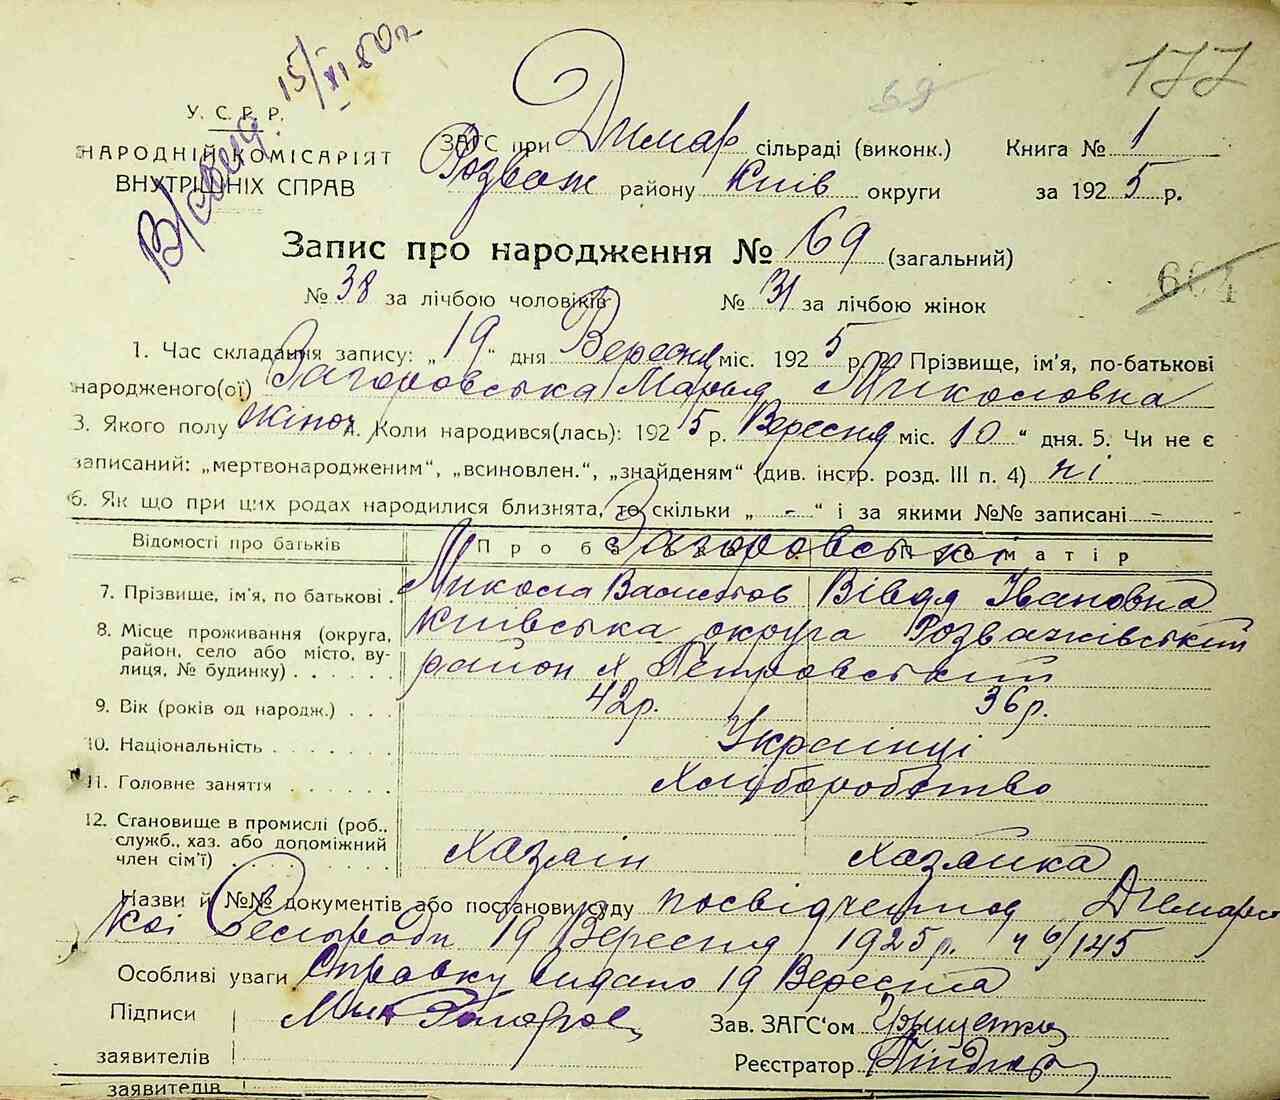 15/XI 80 г.
177
69
У. С. Р. Р.
НАРОДНІЙ КОМІСАРІЯТ
ВНУТРІШНІХ СПРАВ
ЗАГС при Димар сільраді (виконк.) Книга № 1
Розваж району Київ округи за 1925 р.
Запис про народження № 69 (загальний)
604
№ 38 за лічбою чоловіків № 31 за лічбою жінок
1. Час складання запису: „19“ дня Вересня міс. 1925 р. 2. Прізвище, ім'я, по-батькові
народженого(ої) Загоровська Марья Миколовна
3. Якого полу жіноч 4. Коли народився(лась): 1925 р. Вересня міс. 10 “ дня. 5. Чи не є
записаний: „мертвонародженим“, „всиновлен.“, „знайденям“ (див. інстр. розд. III п. 4) ні
6. Як що при цих родах народилися близнята, то скільки „ - “ і за якими №№ записані -
Відомості про батьків Про батька Про матір
Загоровські
7. Прізвище, ім'я, по батькові . Микола Васильов Івановна
8. Місце проживання (округа, район, село або місто, вулиця, № будинку) . . . . . . Київська округа Розважівський
район х. Петровський
9. Вік (років од народж.) . . . 42р. 36р.
10. Національність . . . . . . . Українці
11. Головне заняття . . . . . . Хліборобство
12. Становище в промислі (роб., служб., хаз. або допоміжний член сім'ї) . . . . . . . Хазяїн Хазяйка
Назви й №№ документів або постанови суду посвідчення Димарс
кої Сельради 19 Вересня 1925 р. ч 6/145
Особливі уваги Справку видано 19 Вересня
Підписи Зав. ЗАГС'ом
заявителів Реєстратор
заявителів